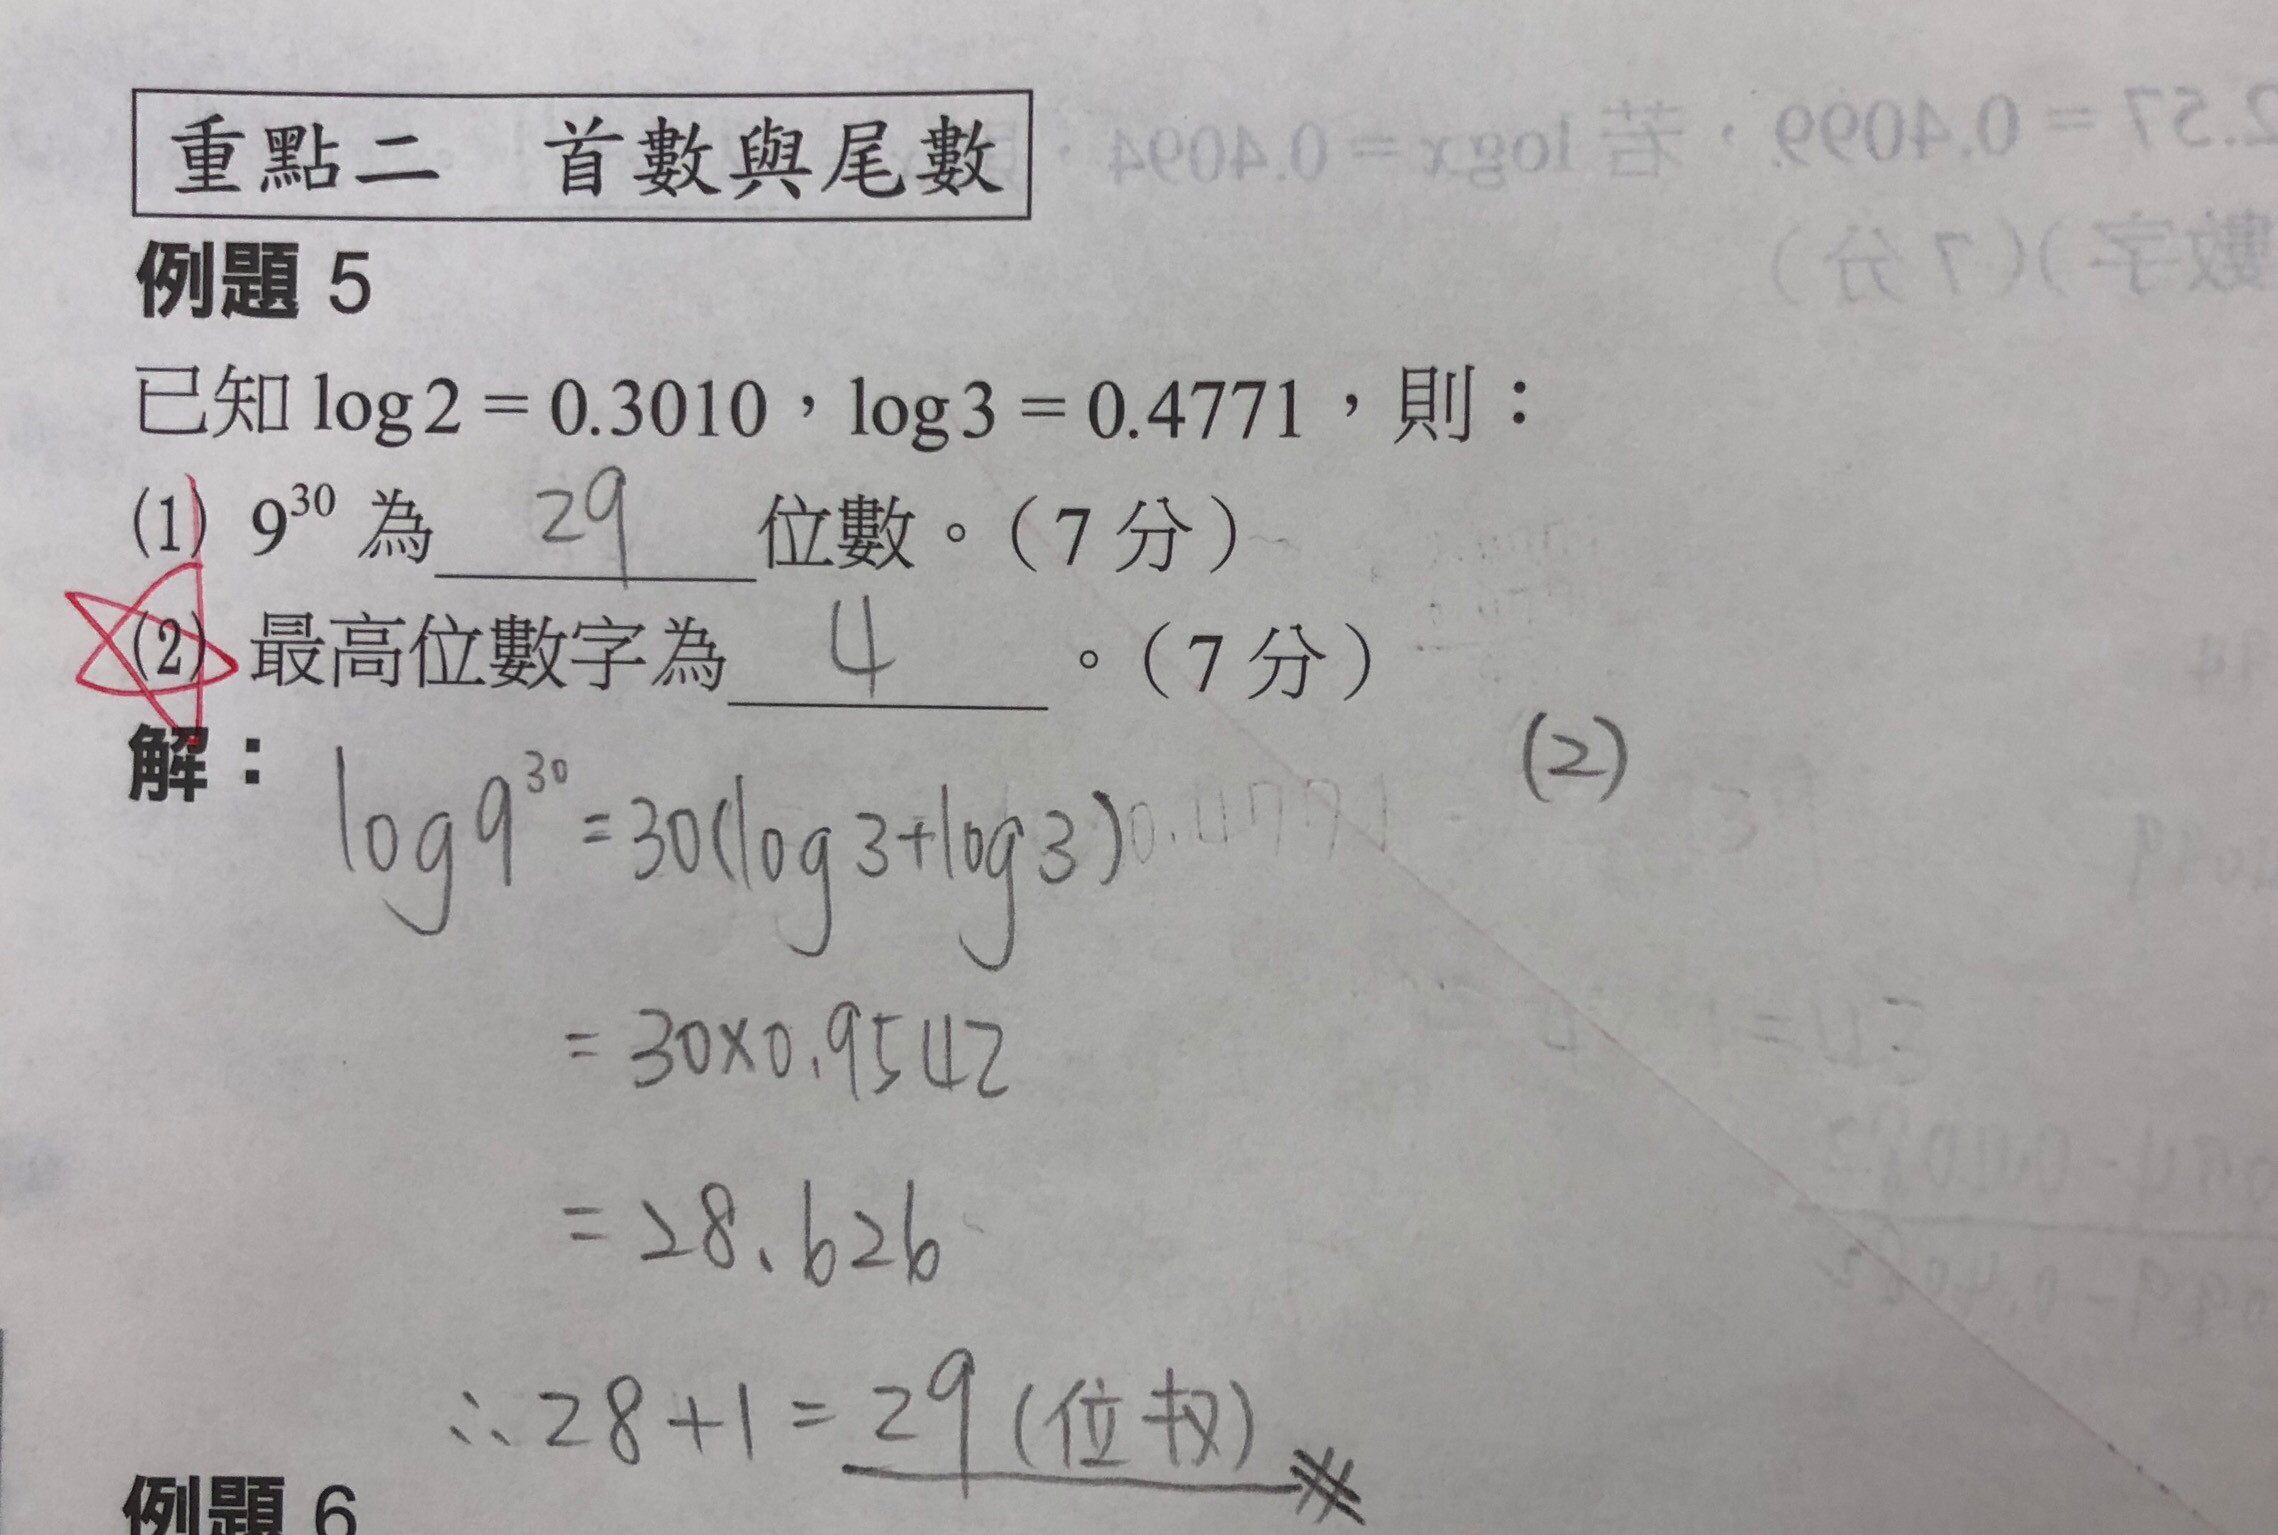 重點二 首數與尾數
例題 5
已知 log 2 = 0.3010，log 3 = 0.4771，則：
(1) 9³⁰ 為 29 位數。（7 分）
(2) 最高位數字為 4 。（7 分）
解：
log 9³⁰ = 30(log 3 + log 3)
(2)
= 30×0.9542
= 28.626
∴ 28 + 1 = 29 (位数)
例題 6